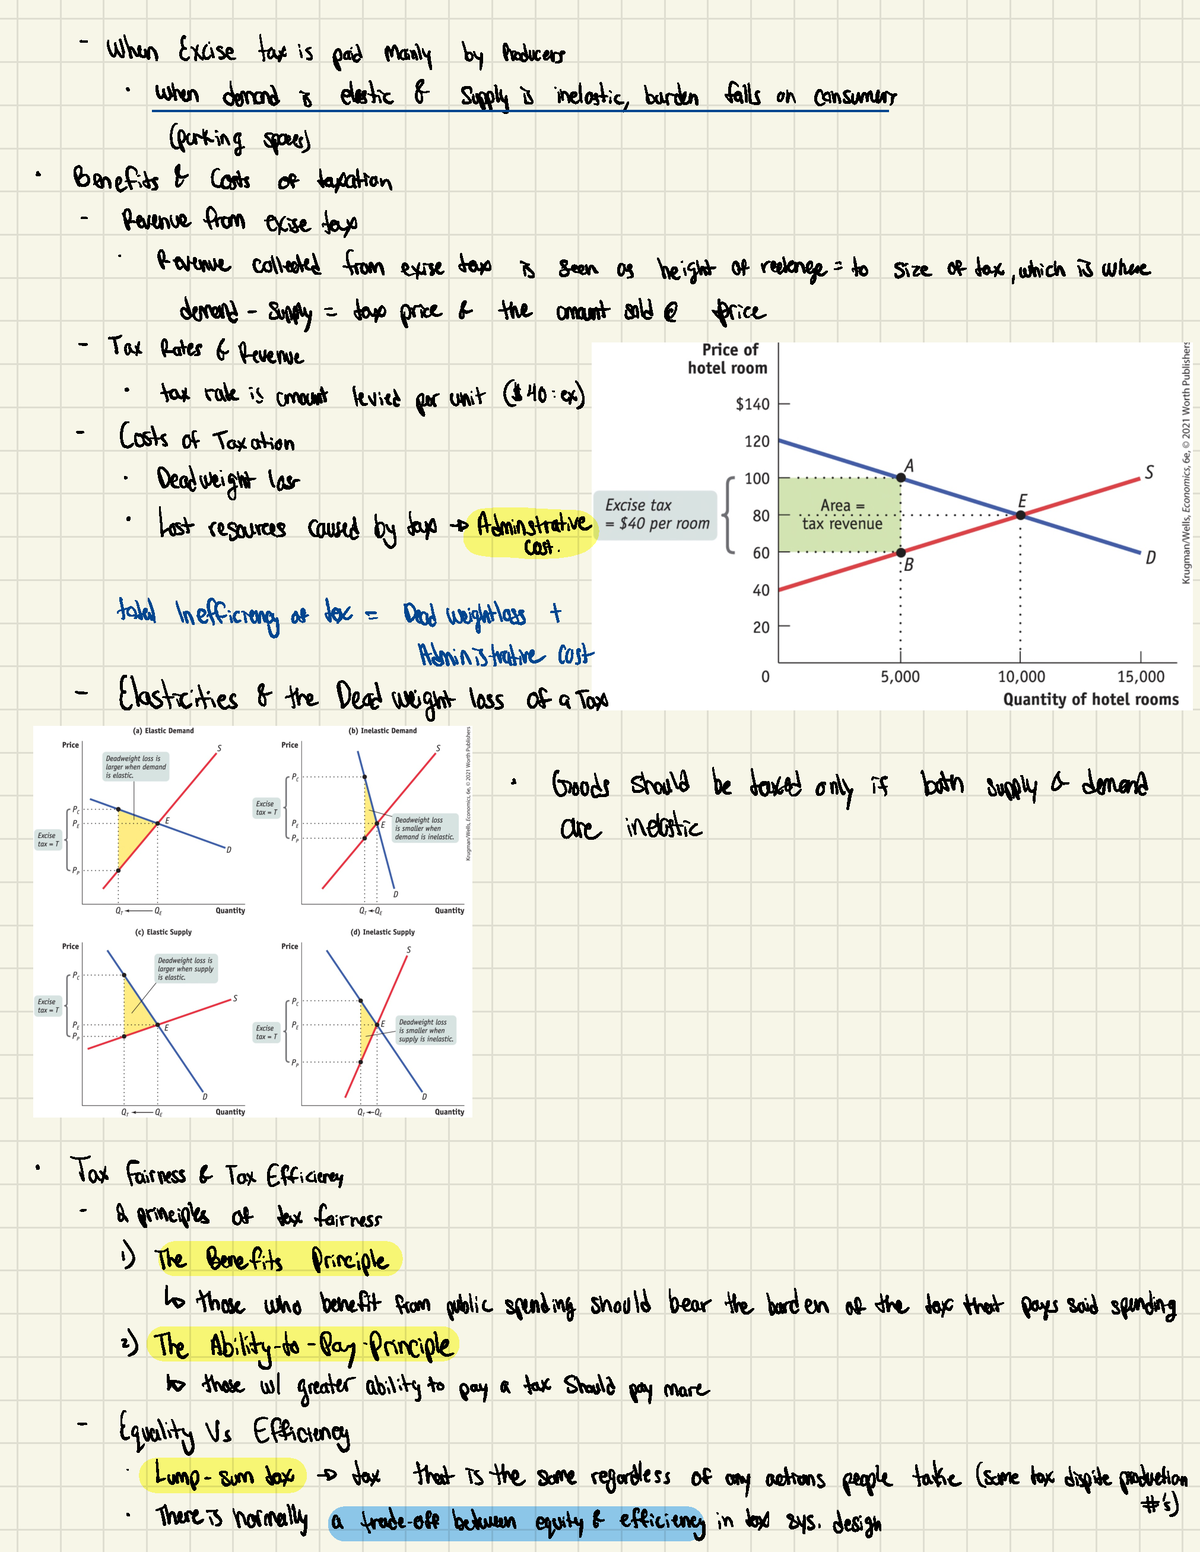 - When Excise tax is paid mainly by Producers
• when demand is elastic & Supply is inelastic, burden falls on consumers
(parking spaces)
• Benefits & Costs of taxation
- Revenue from exise tax
• Revenue collected from exise tax is seen as height of = to size of tax, which is where
demand - supply = tax price & the amount sold @ price
- Tax Rates & Revenue
• tax rate is amount levied per unit ($40: ex)
- Costs of Taxation
• Deadweight loss
• Lost resources caused by tax → Adminstrative
cost.
total Inefficiency of tax = Dead weightloss +
Administrative cost
- Elasticities & the Dead weight loss of a Tax
Price of
hotel room
$140
120
100
80
60
40
20
0
5,000
10,000
15,000
Quantity of hotel rooms
Excise tax
= $40 per room
Area =
tax revenue
A
B
E
S
D
Krugman/Wells, Economics, 6e, © 2021 Worth Publishers
(a) Elastic Demand
Price
Deadweight loss is
larger when demand
is elastic.
S
Excise
tax = T
PC
PE
PP
E
D
QT
QE
Quantity
(b) Inelastic Demand
Price
S
Excise
tax = T
PC
PE
PP
E
Deadweight loss
is smaller when
demand is inelastic.
D
QT
QE
Quantity
Krugman/Wells, Economics, 6e, © 2021 Worth Publishers
(c) Elastic Supply
Price
Deadweight loss is
larger when supply
is elastic.
S
Excise
tax = T
PC
PE
PP
E
D
QT
QE
Quantity
(d) Inelastic Supply
Price
S
Excise
tax = T
PC
PE
PP
E
Deadweight loss
is smaller when
supply is inelastic.
D
QT
QE
Quantity
• Goods should be taxed only if both supply & demand
are inelastic
• Tax Fairness & Tax Efficiency
- 2 principles of tax fairness
1) The Benefits Principle
↳ those who benefit from public spending should bear the burden of the tax that pays said spending
2) The Ability-to-Pay-Principle
↳ those w/ greater ability to pay a tax Should pay more
- Equality Vs Efficiency
• Lump-sum tax → tax that is the same regardless of any actions people take (same tax dispite production
#'s)
• There is normally a trade-off between equity & efficiency in tax sys. design